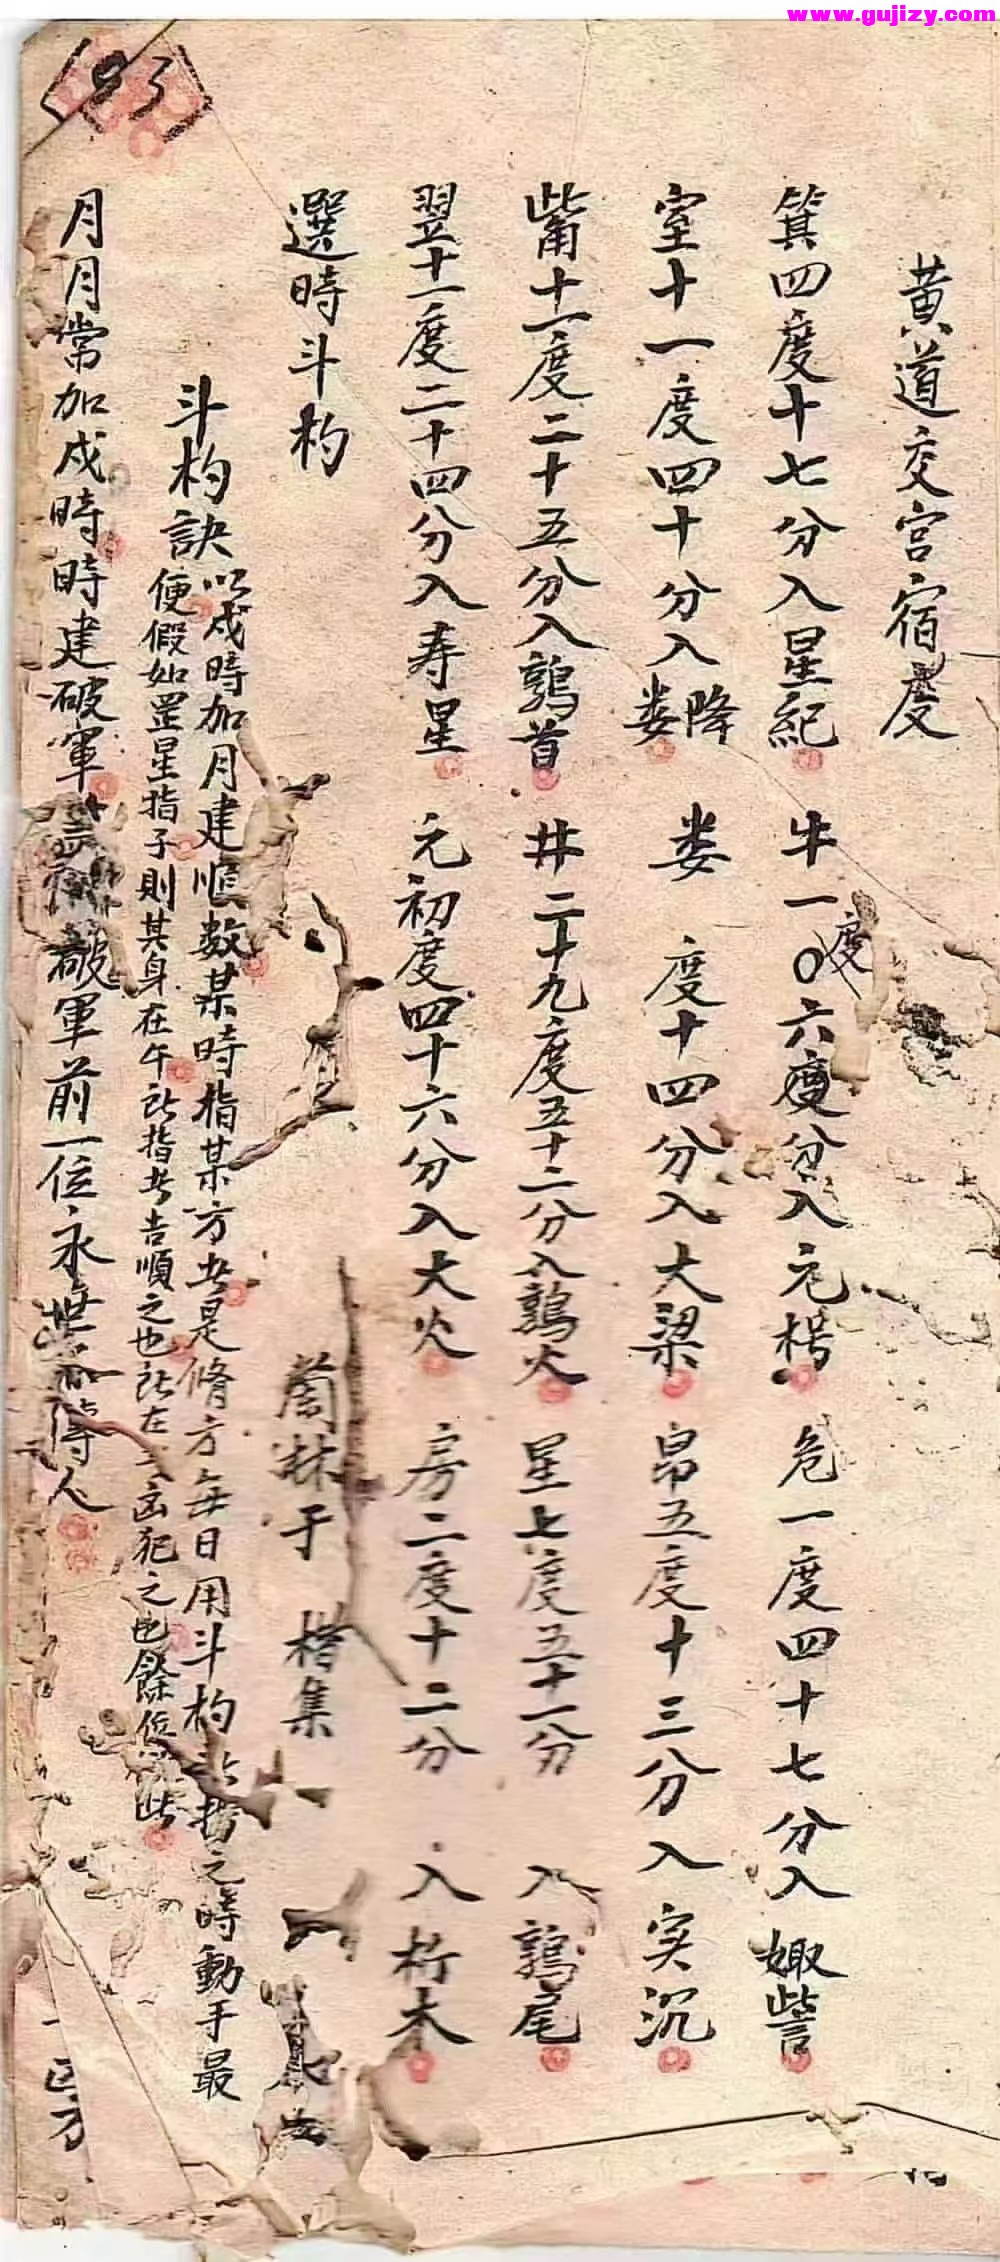 www.gujizy.com
黄道交宫宿度
箕四度十七分入星紀 牛一度〇六分入元枵 危一度四十七分入娵訾
室十一度四十分入降婁 娄 度十四分入大梁 昴五度十三分入実沉
觜十一度二十五分入鶉首 井二十九度五十二分入鶉火 星七度五十一分入鶉尾
翌十一度二十四分入寿星 元初度四十六分入大火 房二度十二分 入析木
選時斗杓 蘭林于 楷集
斗杓訣 以戍時加月建順数某時指某方当是脩方每日用斗杓 指之時動手最
便假如罡星指子則其身在午所指者吉順之也所在 凶犯之也餘 此
月月常加戍時時建破軍 破軍前一位永世 得人